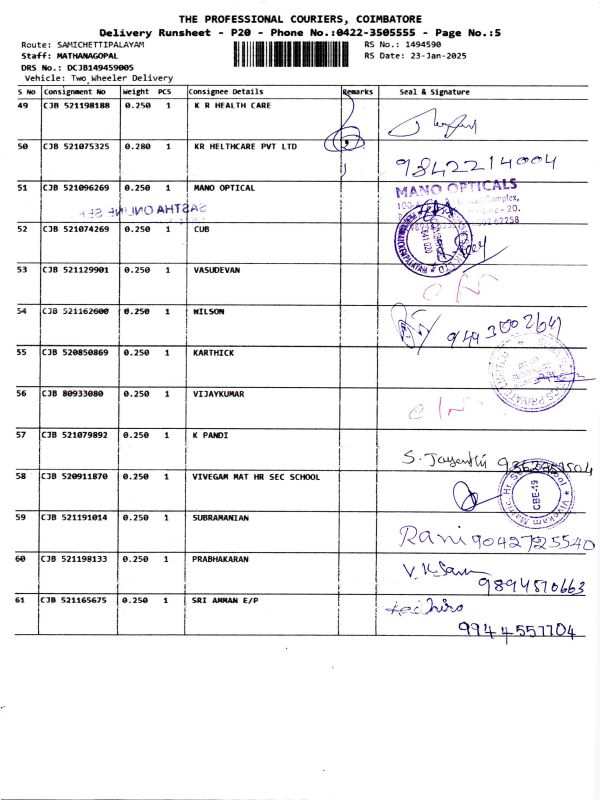 THE PROFESSIONAL COURIERS, COIMBATORE
Delivery Runsheet - P20 - Phone No.:0422-3505555 - Page No.:5
Route: SAMICHETTIPALAYAM RS No.: 1494590
Staff: MATHANAGOPAL RS Date: 23-Jan-2025
DRS No.: DCJB149459005
Vehicle: Two Wheeler Delivery
S No Consignment No Weight PCS Consignee Details Remarks Seal & Signature
49 CJB 521198188 0.250 1 K R HEALTH CARE
50 CJB 521075325 0.280 1 KR HELTHCARE PVT LTD
9842214004
51 CJB 521096269 0.250 1 MANO OPTICAL MANO OPTICALS
Complex,
SASTHA ONLINE SER
52 CJB 521074269 0.250 1 CUB
53 CJB 521129901 0.250 1 VASUDEVAN
54 CJB 521162600 0.250 1 WILSON
55 CJB 520850869 0.250 1 KARTHICK
56 CJB 80933080 0.250 1 VIJAYKUMAR
57 CJB 521079892 0.250 1 K PANDI
S. Jayanthi
58 CJB 520911870 0.250 1 VIVEGAM MAT HR SEC SCHOOL
CBE-19
59 CJB 521191014 0.250 1 SUBRAMANIAN
Rani 9042725540
60 CJB 521198133 0.250 1 PRABHAKARAN
9894570663
61 CJB 521165675 0.250 1 SRI AMMAN E/P
9944557704